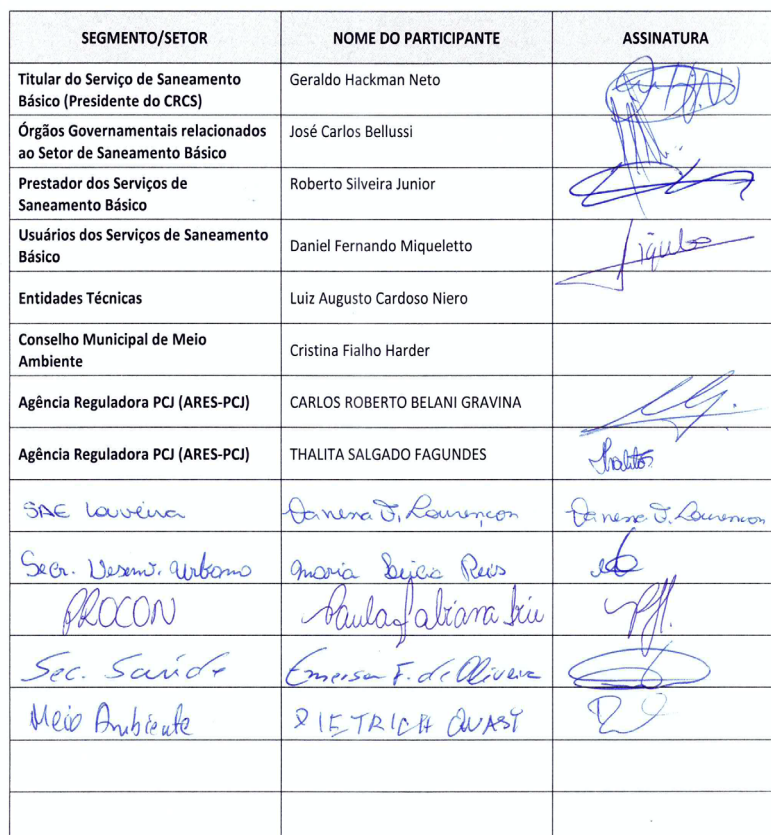 SEGMENTO/SETOR NOME DO PARTICIPANTE ASSINATURA
Titular do Serviço de Saneamento
Básico (Presidente do CRCS) Geraldo Hackman Neto
Órgãos Governamentais relacionados
ao Setor de Saneamento Básico José Carlos Bellussi
Prestador dos Serviços de
Saneamento Básico Roberto Silveira Junior
Usuários dos Serviços de Saneamento
Básico Daniel Fernando Miqueletto
Entidades Técnicas Luiz Augusto Cardoso Niero
Conselho Municipal de Meio
Ambiente Cristina Fialho Harder
Agência Reguladora PCJ (ARES-PCJ) CARLOS ROBERTO BELANI GRAVINA
Agência Reguladora PCJ (ARES-PCJ) THALITA SALGADO FAGUNDES Thalita
SAE Louveira Vanessa F. Lourençon Vanessa F. Lourençon
Secr. Desenv. Urbano Maria Reis
PROCON Paula Fabiana
Sec. Saúde Emerson F. de Oliveira
Meio Ambiente DIETRICH QUAST